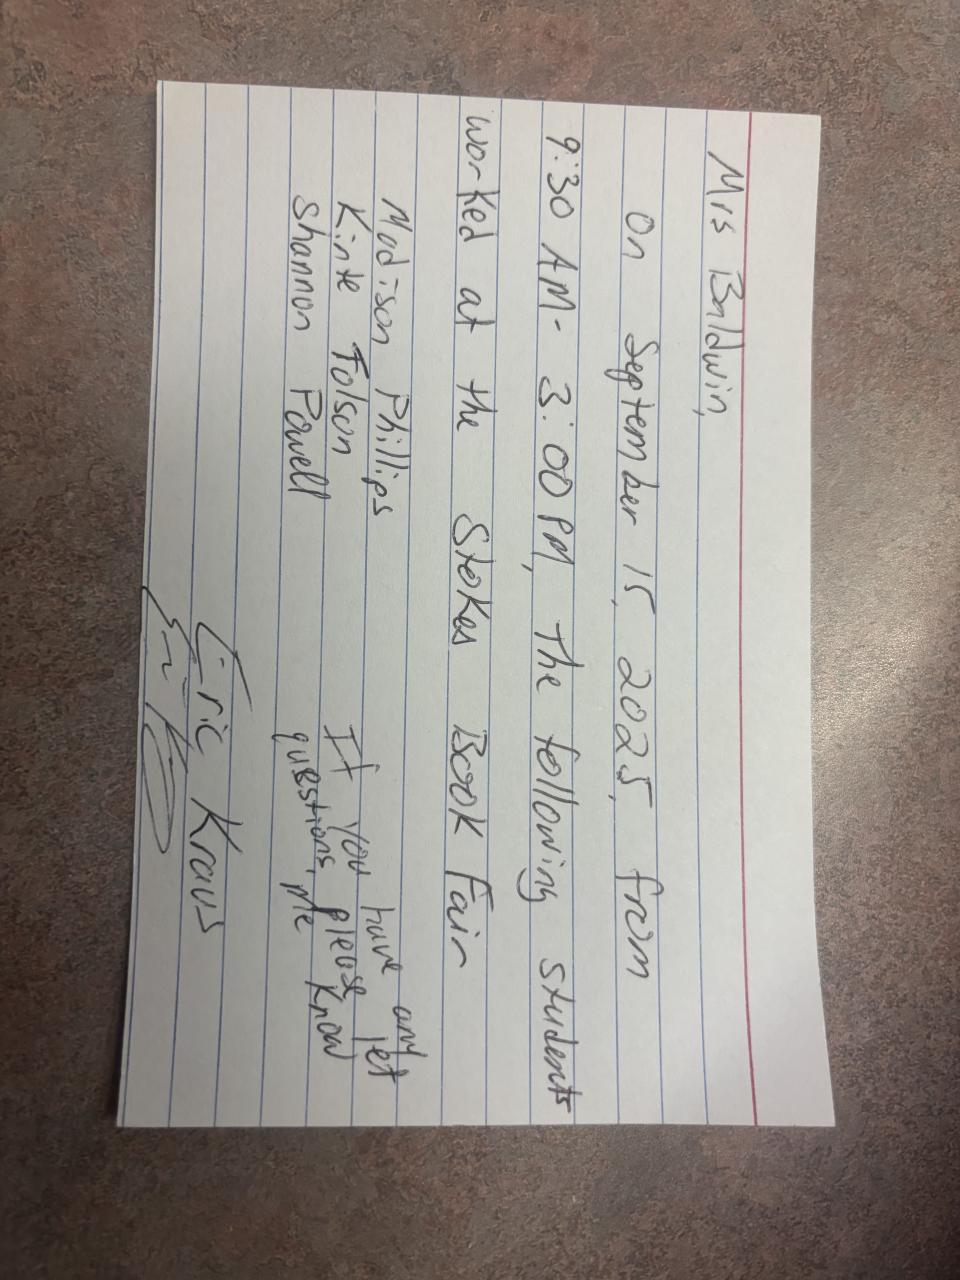 Mrs Baldwin,
On September 15, 2025, from
9:30 AM - 3:00 PM, the following students
worked at the Stokes Book Fair
Madison Phillips
Kinte Folson
Shannon Powell
If you have any
questions, please let
me know
Eric Kraus